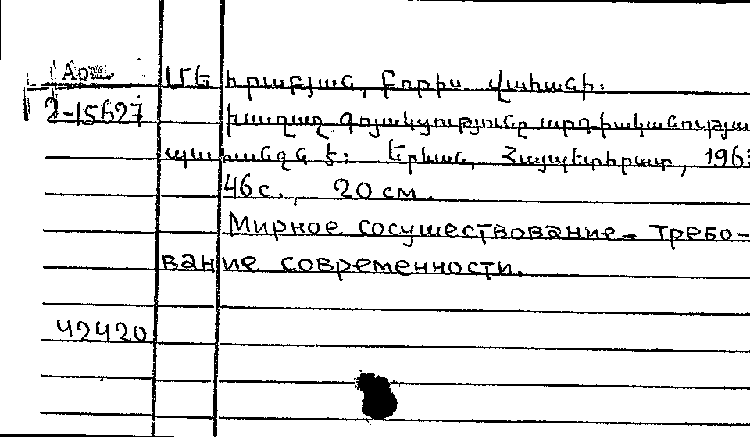 Арм
2-15627
Մեհրաբյան, Բորիս Վահանի.
Խաղաղ գոյակցությունը արդիականության
պահանջն է: Երևան, Հայպետհրատ, 196
46 с., 20 см.
Мирное сосуществование - требо-
вание современности.
42420